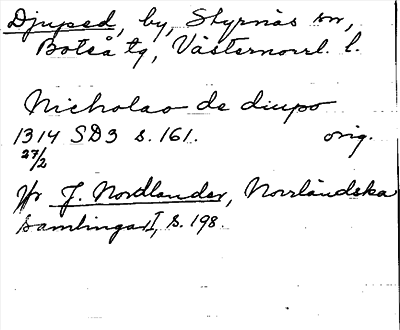 Djuped, by, Styrnäs sn,
Boteå tg, Västernorrl. l.
Nicholao de diupo
1314 SD3 s. 161. orig.
27/2
Jfr J. Nordlander, Norrländska
samlingar I, s. 198.